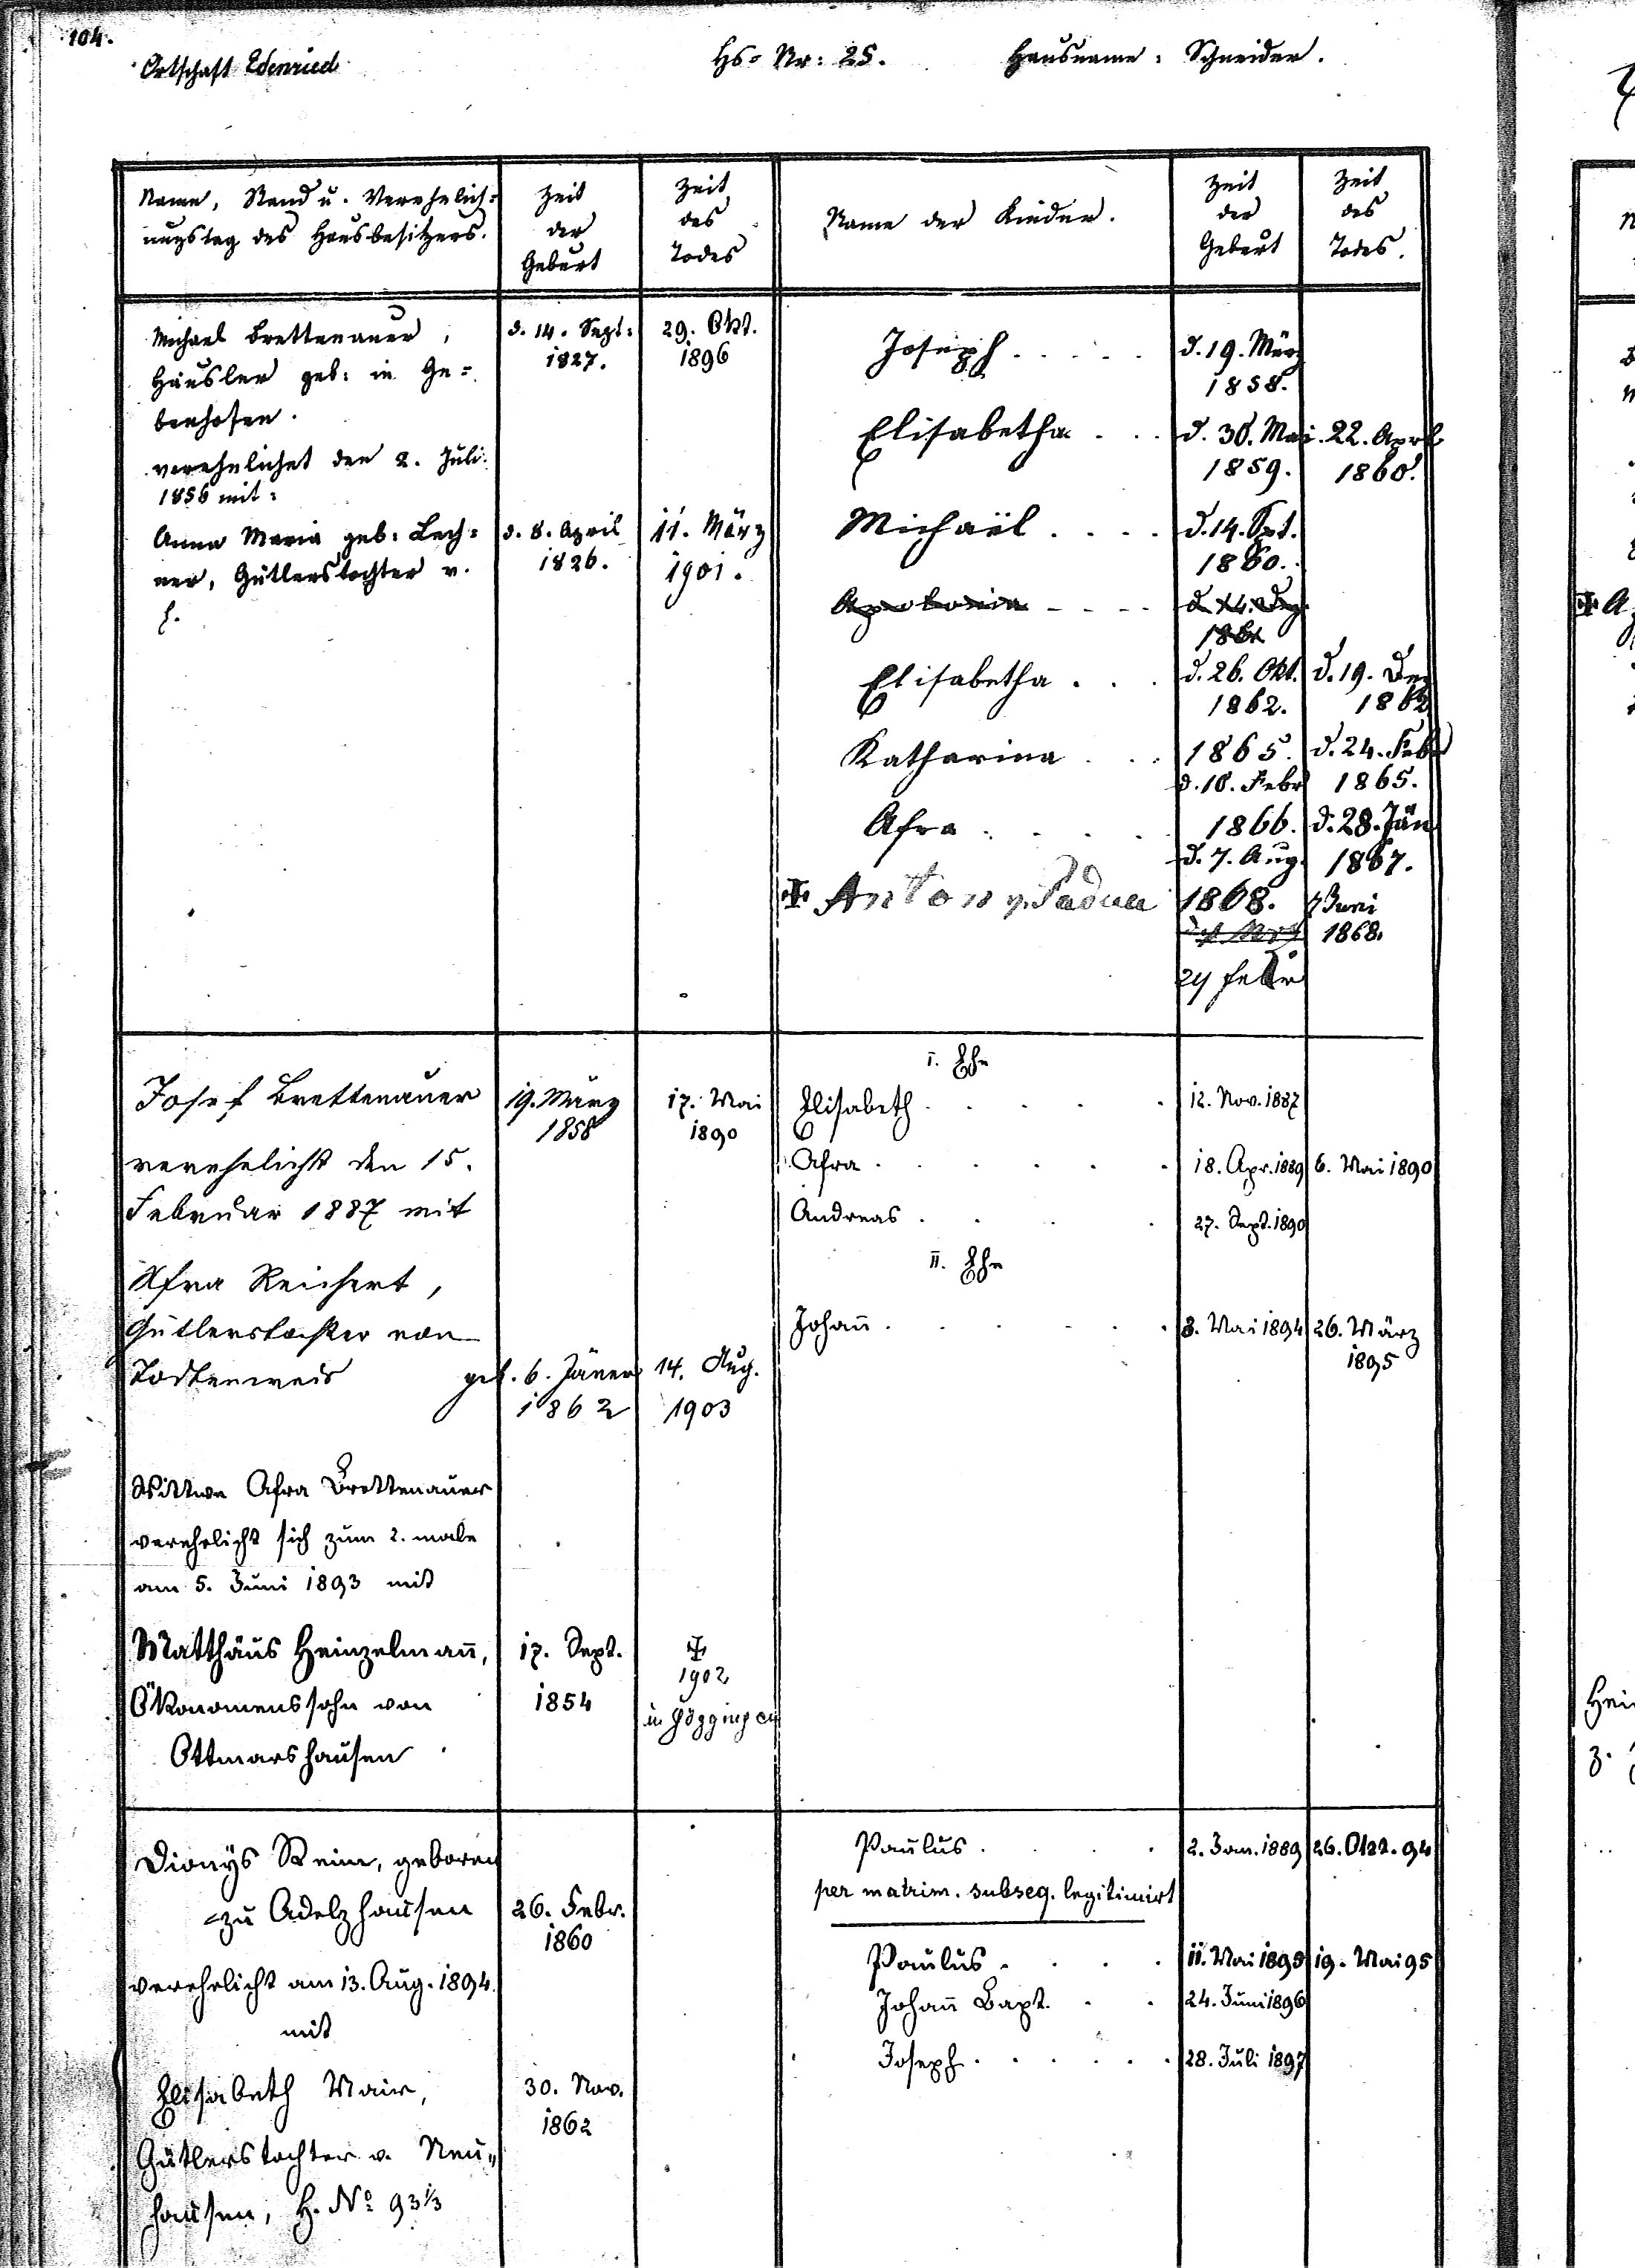 104.
Ortschaft Edenried
Hs-Nr: 25.
Hausname: Schneider.
Name, Stand u. Verehelich=
ungstag des Hausbesitzers.
Zeit
der
Geburt
Zeit
des
Todes
Name der Kinder.
Zeit
der
Geburt
Zeit
des
Todes.
Michael Brettenauer,
Häusler geb: in Ge=
benhofen.
verehelichet den 2. Juli
1856 mit:
Anna Maria geb: Lech=
ner, Gütlerstochter v.
h.
d. 14. Sept:
1827.
29. Okt.
1896
d. 8. April
1826.
11. März
1901.
Joseph . . . . . d. 19. März
1858.
Elisabetha . . . d. 30. Mai 22. April
1859. 1860.
Michaël . . . . d. 14. Spt.
1860.
Apolonia . . . .
Elisabetha . . . d. 26. Okt. d. 19. Dez
1862. 1862
Katharina . . . 1865. d. 24. Feb
d. 10. Febr 1865.
Afra . . . . 1866. d. 28. Jän
d. 7. Aug. 1867.
Anton v. Padua 1868. Juni
1868.
29 Febr
Josef Brettenauer
verehelicht den 15.
Februar 1887 mit
Afra Reichert,
Gütlerstochter von
Todtenweis
19. März
1858
17. Mai
1890
geb. 6. Jäner
1862
14. Aug.
1903
I. Ehe
Elisabeth . . . . . 12. Nov. 1887
Afra . . . . . . 18. Apr. 1889 6. Mai 1890
Andreas . . . . 27. Sept. 1890
II. Ehe
Johan̄ . . . . . . 8. Mai 1894 26. März
1895
Wittwe Afra Brettenauer
verehelicht sich zum 2. male
am 5. Juni 1893 mit
Matthäus Heinzelman̄,
Ökonomenssohn von
Ottmarshausen
17. Sept.
1854
✠
1902
in Göggingen
Dionys Keim, geboren
zu Adelzhausen
verehelicht am 13. Aug. 1894
mit
Elisabeth Mair,
Gütlerstochter v. Neu„
hausen, H. No 93⅓
26. Febr.
1860
30. Nov.
1862
Paulus . . . . 2. Jan. 1889 26. Okt. 94
per matrim. subseq. legitimirt
Paulus . . . . 11. Mai 1895 19. Mai 95
Johan̄ Bapt. . . 24. Juni 1896
Joseph . . . . . . 28. Juli 1897